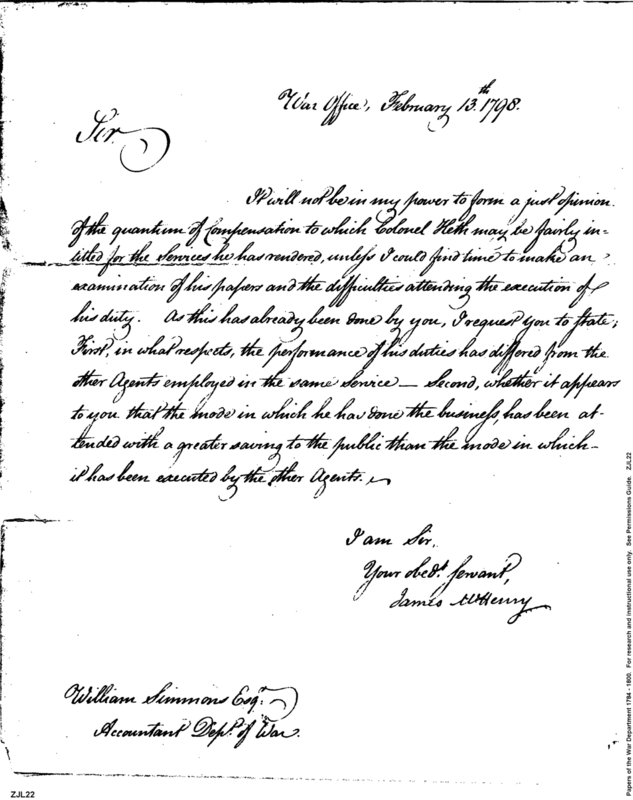 War Office, February 13.th 1798.
Sir.
It will not be in my power to form a just opinion
of the quantum of Compensation to which Colonel Heth may be fairly in-
titled for the Services he has rendered, unless I could find time to make an
examination of his papers and the difficulties attending the execution of
his duty. As this has already been done by you, I request you to state;
First, in what respects, the performance of his duties has differed from the
other Agents employed in the same service — Second, whether it appears
to you that the mode in which he has done the business, has been at-
tended with a greater saving to the public than the mode in which
it has been executed by the other Agents.
I am Sir,
Your obed.t servant,
James McHenry
William Simmons Esq.r
Accountant Dep.t of War.
ZJL22
Papers of the War Department 1784 - 1800. For research and instructional use only. See Permissions Guide. ZJL22